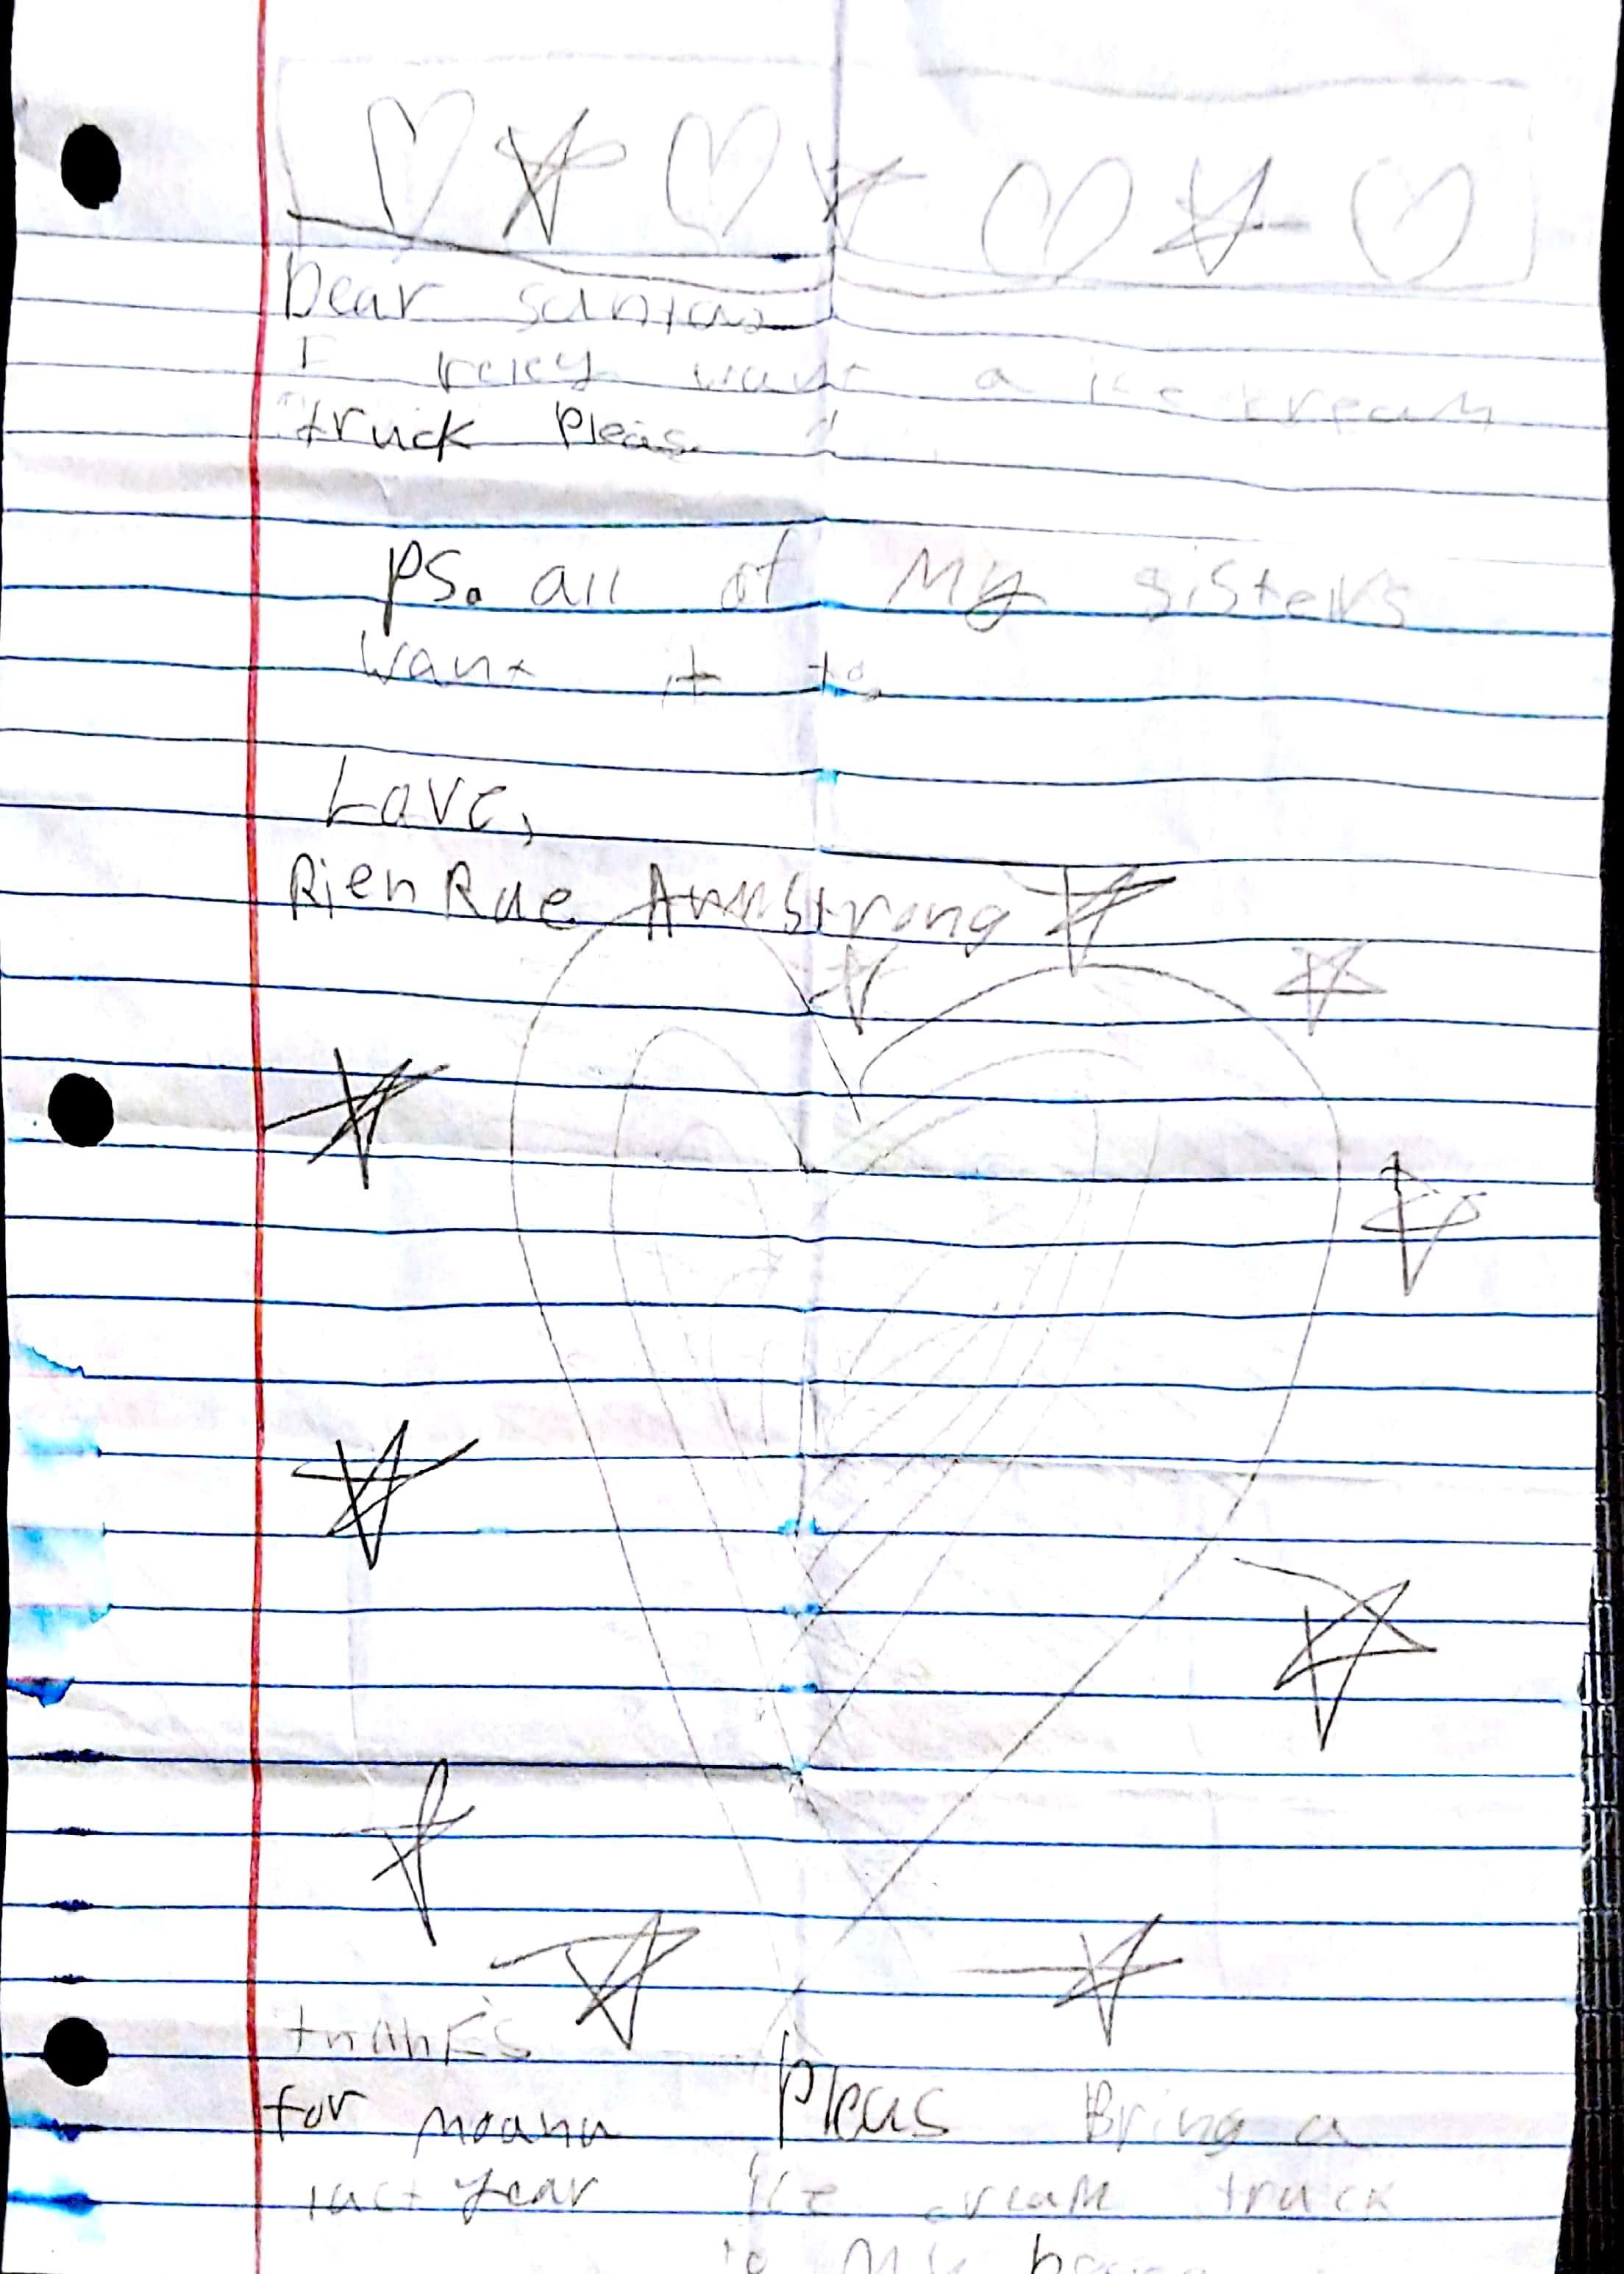 Dear santa
I reley want a ice kream
truck Pleas
PS. all of My sisters
want it to.
Love,
Rien Rae Armstrong
thanks
for moana
last year
Pleas Bring a
Ice cream truck
to My